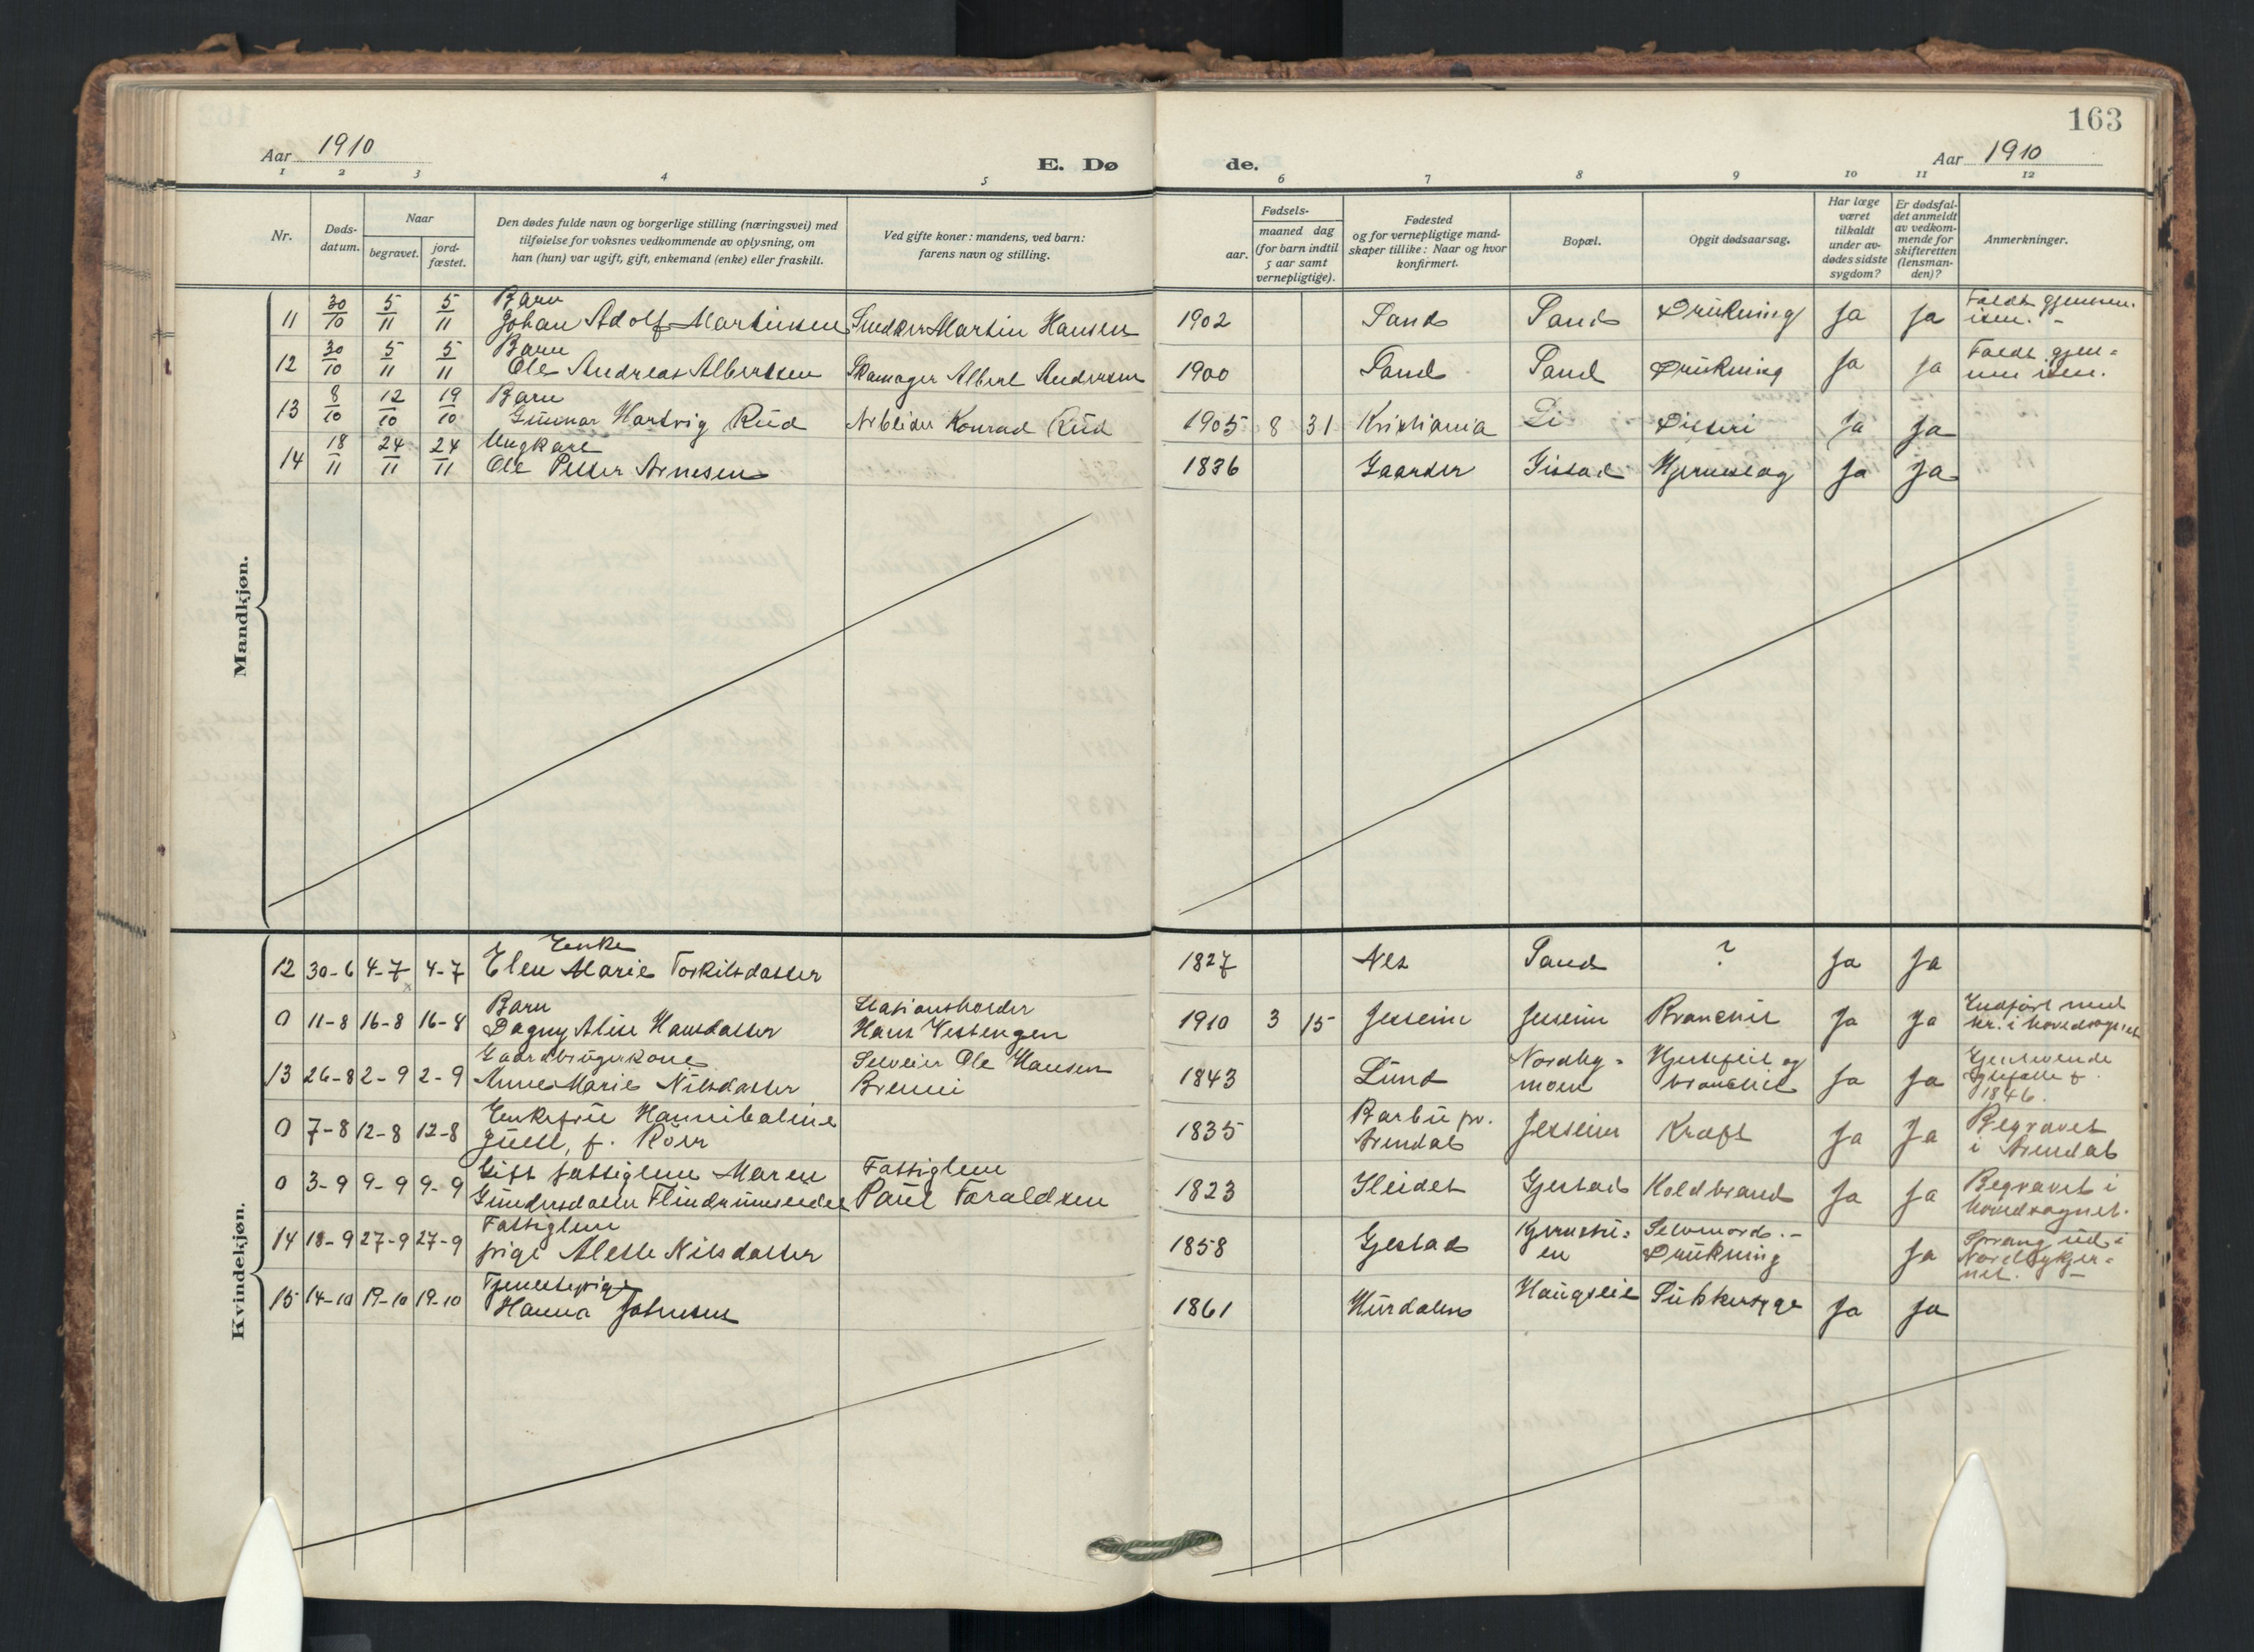 163
Aar 1910
E. Dø de.
Aar 1910
1 2 3 4 5 6 7 8 9 10 11 12
Nr.
Døds-
datum.
Naar
begravet.
jord-
fæstet.
Den dødes fulde navn og borgerlige stilling (næringsvei) med
tilføielse for voksnes vedkommende av oplysning, om
han (hun) var ugift, gift, enkemand (enke) eller fraskilt.
Ved gifte koner: mandens, ved barn:
farens navn og stilling.
Fødsels-
aar.
maaned dag
(for barn indtil
5 aar samt
vernepligtige).
Fødested
og for vernepligtige mand-
skaper tillike: Naar og hvor
konfirmert.
Bopæl.
Opgit dødsaarsag.
Har læge
været
tilkaldt
under av-
dødes sidste
sygdom?
Er dødsfal-
det anmeldt
av vedkom-
mende for
skifteretten
(lensman-
den)?
Anmerkninger.
Mandkjøn.
Barn
11 30/10 5/11 5/11 Johan Adolf Martinsen Snedker Martin Hansen 1902 Sand Sand Drukning Ja Ja Faldt gjennem
isen. -
Barn
12 30/10 5/11 5/11 Ole Andreas Albertsen Skomager Albert Andersen 1900 Sand Sand Drukning Ja Ja Faldt gjen-
nem isen.
Barn
13 8/10 12/10 19/10 Gunnar Hartvig Rud Arbeider Konrad Rud 1905 8 31 Kristiania Li Ja Ja
Ungkarl
14 18/11 24/11 24/11 Ole Petter Arnesen 1836 Gaarder Gistad Hjerneslag Ja Ja
Kvindekjøn.
Enke
12 30-6 4-7 4-7 Elen Marie Torkilsdatter 1827 Nes Sand ? Ja Ja
Barn Stationsholder
0 11-8 16-8 16-8 Dagny Alise Hansdatter Hans Vestengen 1910 3 15 Jessheim Jessheim Bronchit Ja Ja Indført med
nr. i hovedsognet
Gaardbrugerkone Selveier Ole Hansen
13 26-8 2-9 2-9 Anne Marie Nilsdatter 1843 Lund Nordby-
moen Hjertefeil og
bronchit Ja Ja Gjenlevende
ægtefælle f.
1846.
Enkefrue Hannibaline
0 7-8 12-8 12-8 f. Rörr 1835 Barbu pr.
Arendal Jessheim Kræft Ja Ja Begravet
i Arendal
Gift fattiglem Maren Fattiglem
0 3-9 9-9 9-9 Gundersdatter Paul Taraldsen 1823 Gjestad Koldbrand Ja Ja Begravet i
hovedsognet.
Fattiglem
14 18-9 27-9 27-9 pige Alette Nilsdatter 1858 Gjestad Selvmord. -
Drukning Ja Sprang ud i
Nordbykjer-
net. -
Tjenestepige
15 14-10 19-10 19-10 Hanna Johnsen 1861 Hurdalen Haugseie Sukkersyge Ja Ja